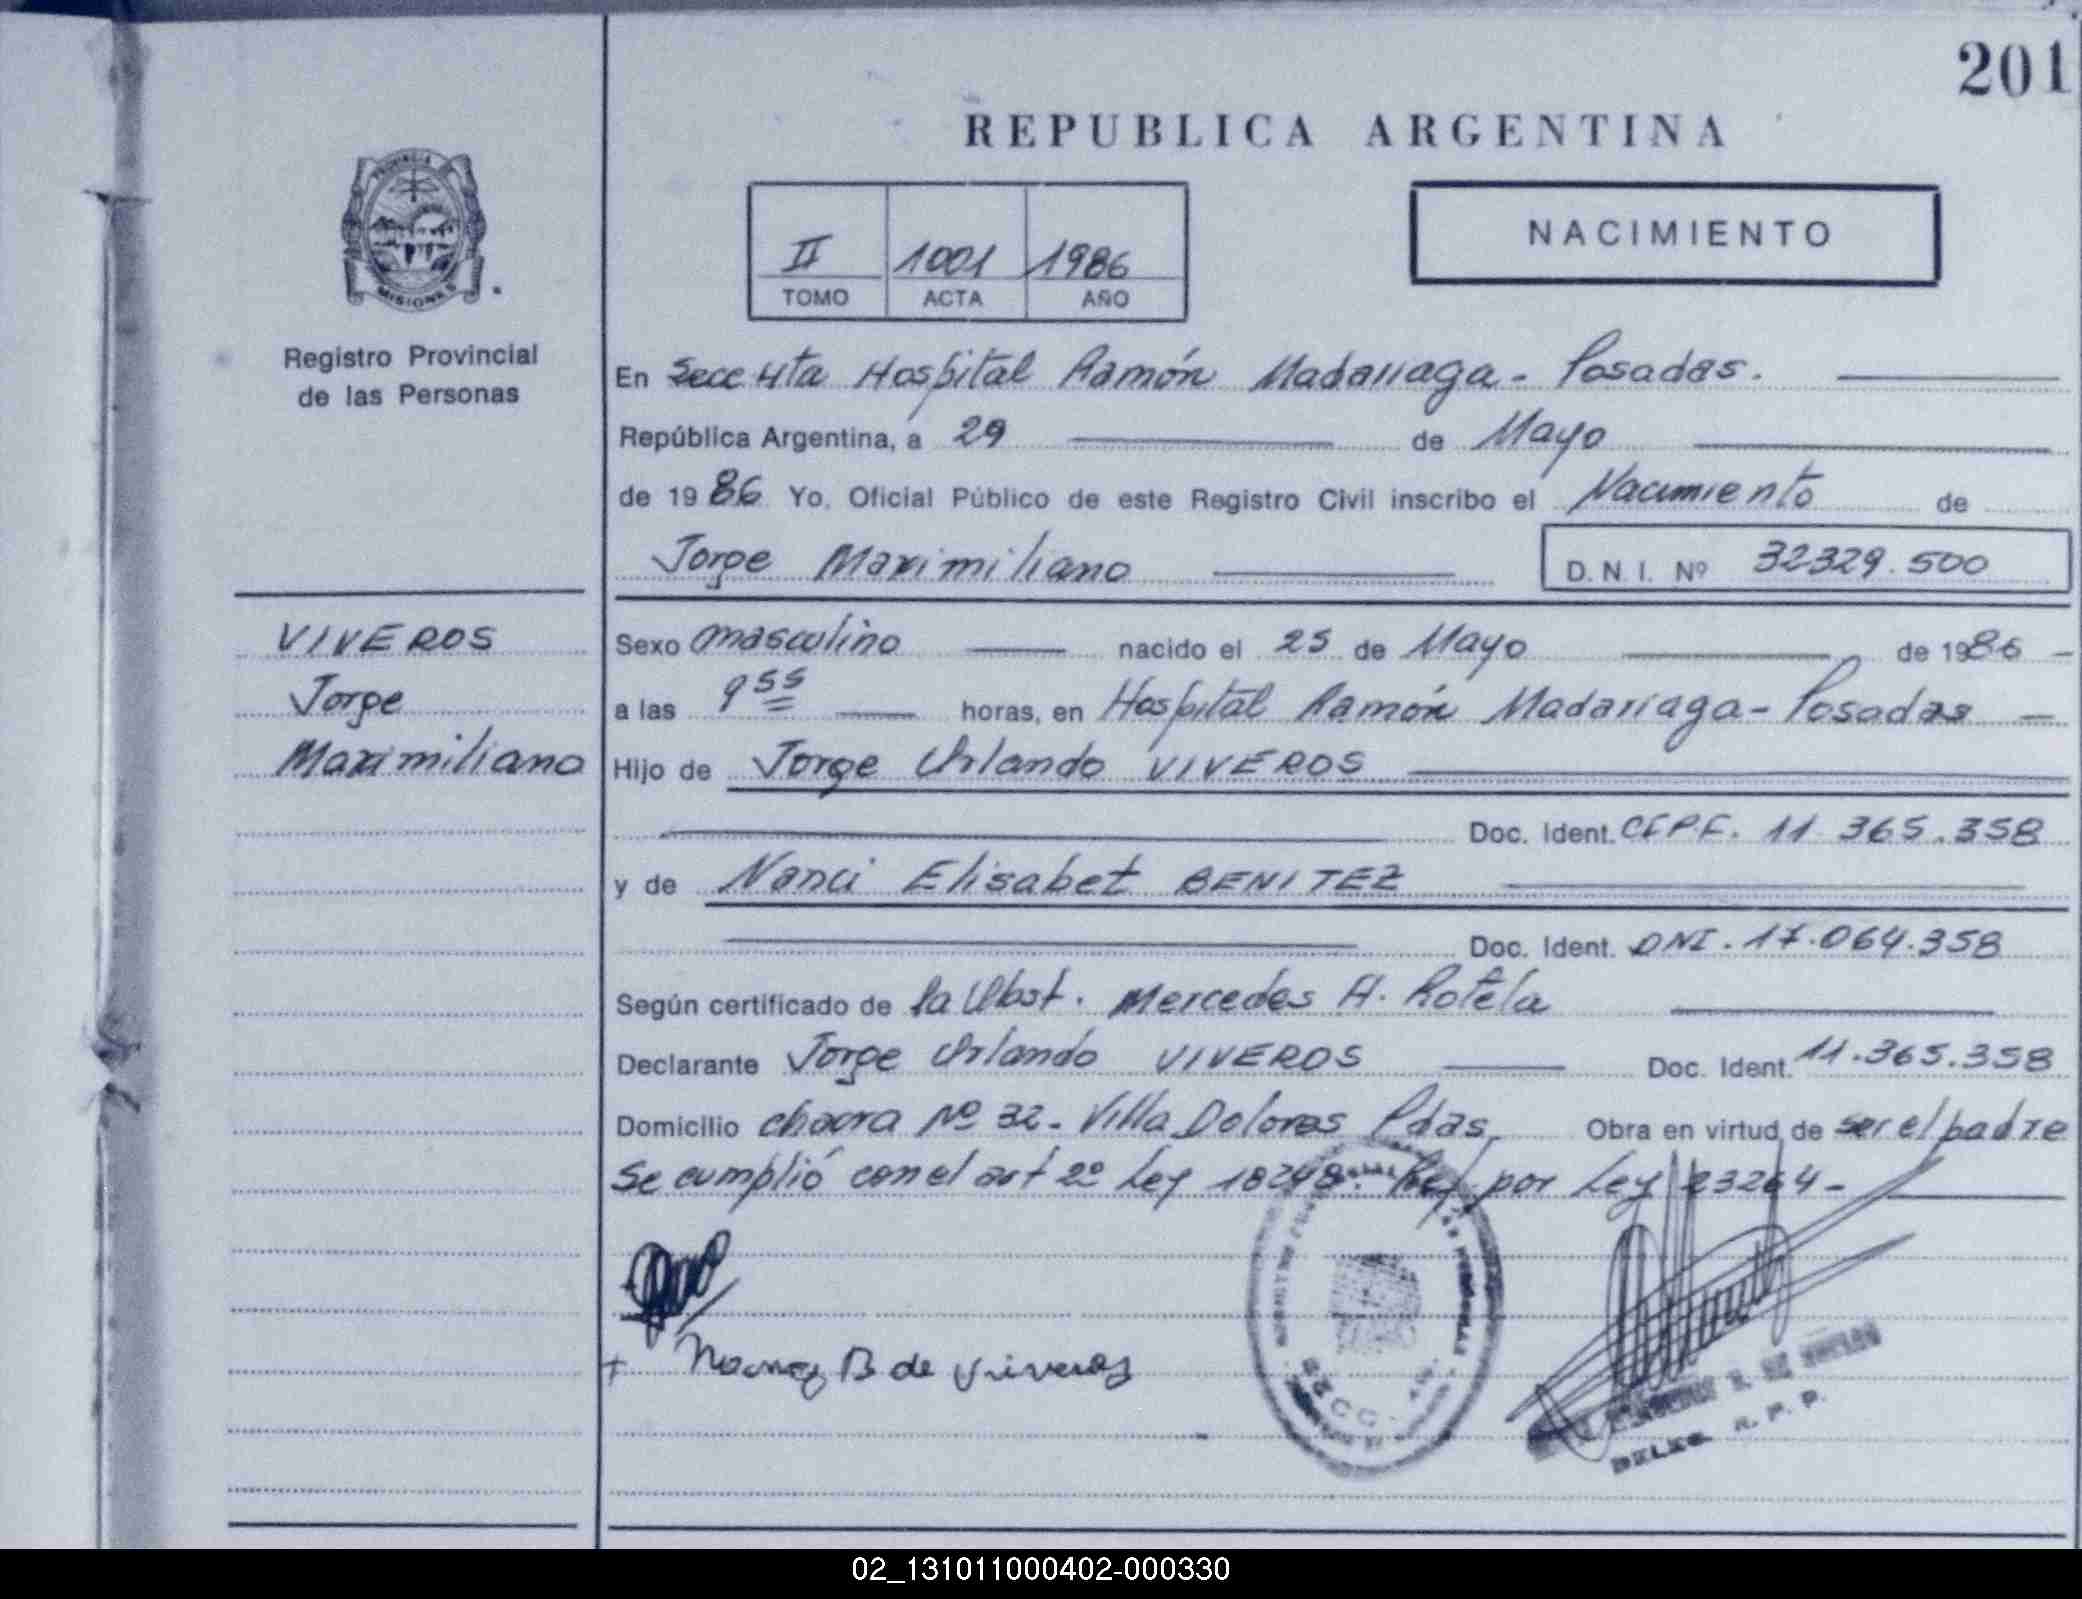 201
REPUBLICA ARGENTINA
PROVINCIA
MISIONES
Registro Provincial
de las Personas
II 1001 1986
TOMO ACTA AÑO
NACIMIENTO
En Secc 4ta Hospital Ramón Madariaga - Posadas.
República Argentina, a 29 de Mayo
de 1986 Yo, Oficial Público de este Registro Civil inscribo el Nacimiento de
Jorge Maximiliano D.N.I. Nº 32329.500
VIVEROS
Jorge
Maximiliano
Sexo masculino nacido el 25 de Mayo de 1986 -
a las 9 55 horas, en Hospital Ramón Madariaga - Posadas -
Hijo de Jorge Orlando VIVEROS
Doc. Ident. 11 365.358
y de Nanci Elisabet BENITEZ
Doc. Ident. DNI. 17.064.358
Según certificado de la Obst. Mercedes H. Rotela
Declarante Jorge Orlando VIVEROS Doc. Ident. 11.365.358
Domicilio chacra Nº 32 - Villa Dolores Pdas, Obra en virtud de ser el padre
Se cumplió con el art 2º Ley 18248. Ref por Ley 23264 -
B de Viveros
R. P. P.
02_131011000402-000330